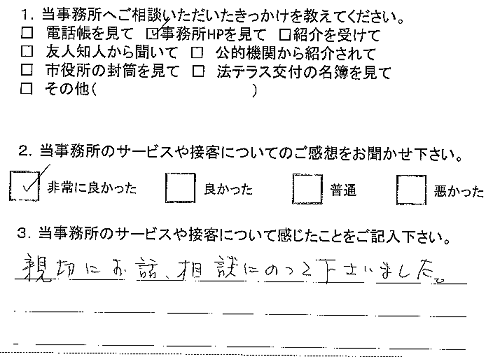 1. 当事務所へご相談いただいたきっかけを教えてください。
□ 電話帳を見て ☑事務所HPを見て □紹介を受けて
□ 友人知人から聞いて □ 公的機関から紹介されて
□ 市役所の封筒を見て □ 法テラス交付の名簿を見て
□ その他( )
2. 当事務所のサービスや接客についてのご感想をお聞かせ下さい。
☑ 非常に良かった □ 良かった □ 普通 □ 悪かった
3. 当事務所のサービスや接客について感じたことをご記入下さい。
親切にお話、相談にのって下さいました。